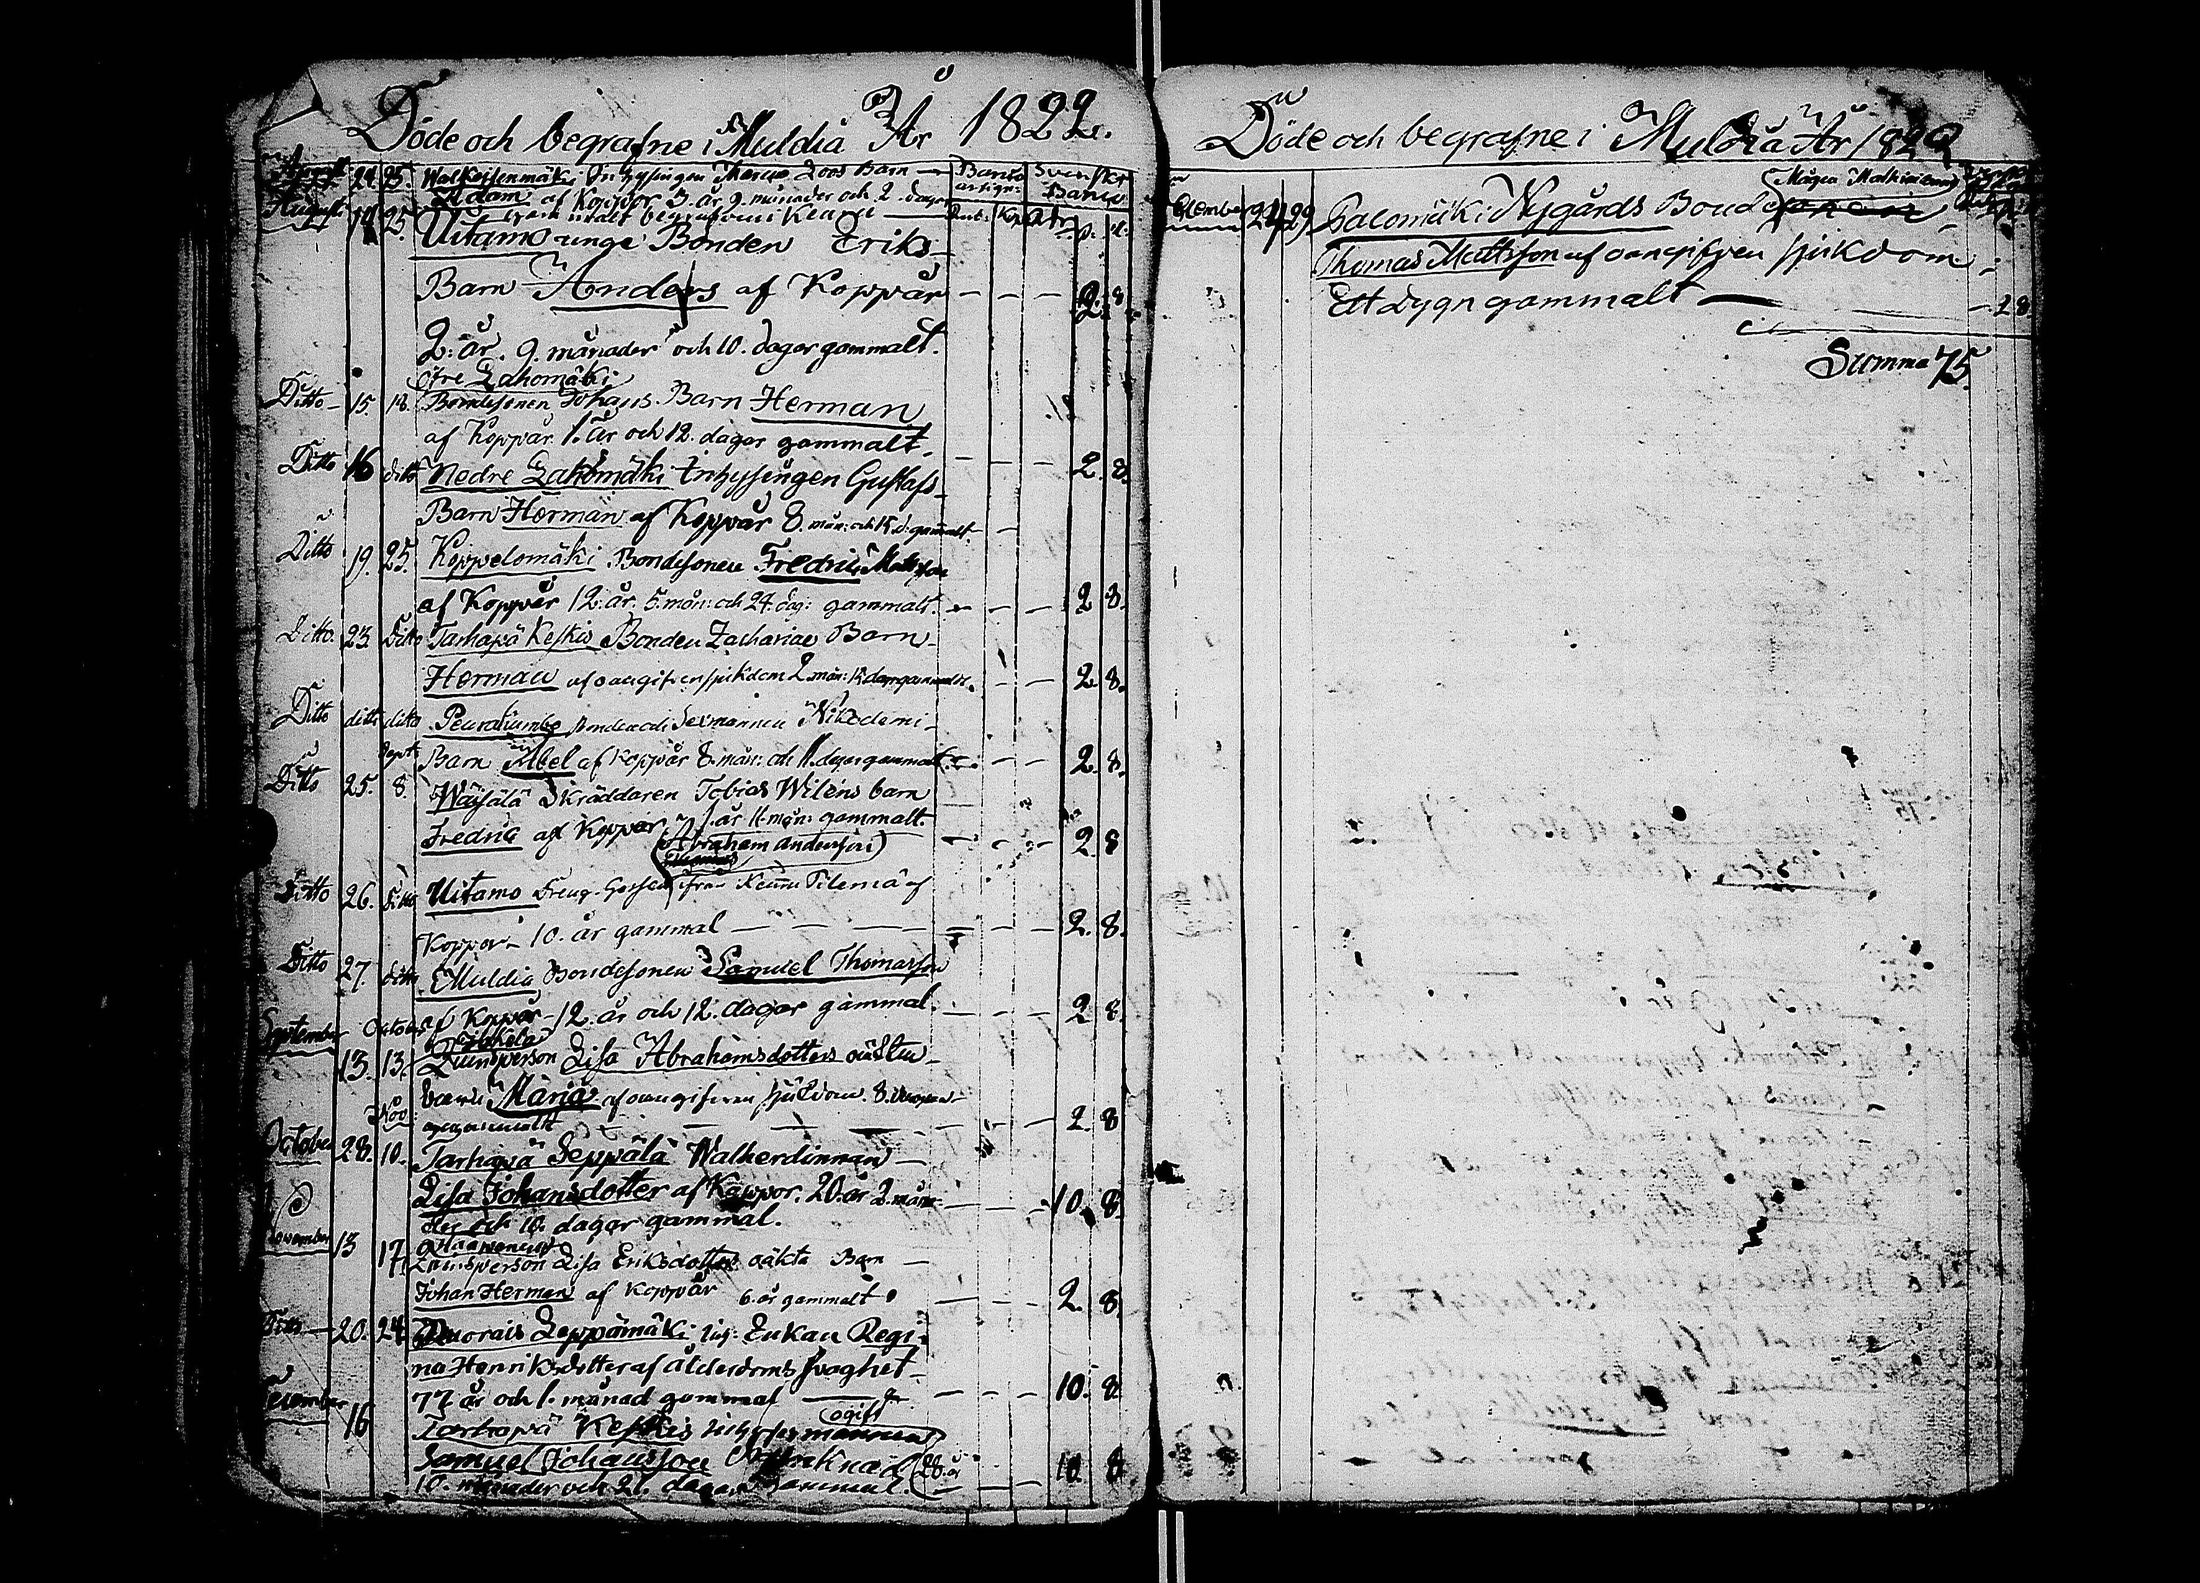 Döde och begrafne i Muldia År 1822.
August 24. 25. Walkeisenmäki Inhysingen Barn
Adam af Koppor 3. år 9. månader och 2. dagar
Banco Svenskt
assign: Banco
August 14 25. Uitamo unge Bonden Eriks
Barn Anders af Koppår — — — 2. 8
2: år. 9. månader och 10. dagar gammalt.
Öfre Lahomäki
Ditto 15. 18. Bondesonen Johans Barn Herman
af Koppår 1. år och 12. dagar gammalt. — — — 2. 8.
Ditto 16 ditto Nedre Lahomäki Inhysingen Gustafs
Barn Herman af Koppår 8. mån: och 15 d: gammalt. —
Ditto 19. 25. Koppelomäki Bondesonen Fredric Mattsson
af Koppår 12. år. 5. mån: och 24. dag: gammalt. — — — 2 8.
Ditto 23. Ditto Tarhapä Keskis Bonden Zachariae Barn
Herman af oangifven sjukdom 2. mån: 15. dagar gammalt. — — 2 8.
Ditto ditto ditto Bonden och Sexmannen Nikodemi
Barn Abel af Koppår 8. mån: och 11. dagar gammalt. — — 2. 8.
Sept:
Ditto 25. 8. Wäisälä Skräddaren Tobias Wilens barn
Fredric af Koppår 1. år 11. mån: gammalt. — — — 2. 8
(Abraham Andersson)
Ditto 26. Ditto Uitamo Dreng Gossen ifrån Keuru Pilemä af
Koppor — 10. år gammal — — — — — 2. 8.
Ditto 27. Ditto Muldia Bondesonen Samuel Thomasson
af Koppår — 12. år och 12. dagar gammal. — — — 2 8.
September October
13. 13. Qvinsperson Lisa Abrahamsdotters oäkta
barn Maria af oangifven sjukdom. 8. — — — 2. 8
gammalt
Nov:
October 28. 10. Tarhapä Seppälä Walkerdinnan —
Lisa Johansdotter af Koppor. 20. år 2. måna- — — 10. 8.
der och 10. dagar gammal.
November 13 17. Qvinsperson Lisa Eriksdotters oäkta Barn —
Johan Herman af Koppår 6. år gammalt — — — 2. 8.
Ditto — 20. 24. Leppämäki Inh: Enkan Regi-
na Henriksdotter af ålderdoms svaghet
77 år och 1. månad gammal — — — — 10. 8.
December 16 Tarhapä Keskis ogift
Samuel Johansson Drunknad (28. år — 10 8
10. månader och 21. dagar gammal.
Döde och begrafne i Muldia År 1822
December 24. 29 Salomäki Nygårds Bonde
Thomas Mattsson af oangifven sjukdom
Ett dygn gammalt — — 2 8.
Summa 75.